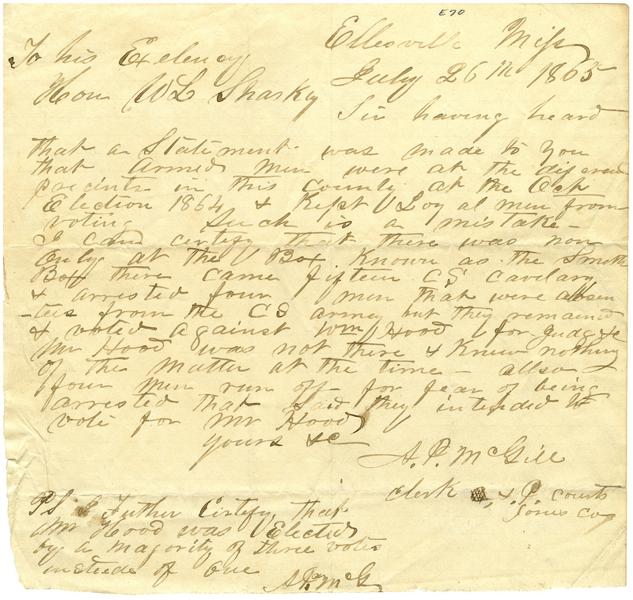 E70
Ellesville Miss
To his Exelency July 26th 1865
Hon W L Sharky
Sir having heard
that a Statement was made to you
that armed men were at the diferent
precints in this County at the Oct
Election 1864 & Kept Loyal men from
voting Such is a mistake -
I can certify that there was non
only at the Box Known as the Smith
Box there came fifteen CS cavelary
& arrested four men that were absen
-tees from the CS army but they remained
& voted against Wm Hood for Judge &c
Mr Hood was not there & Knew nothing
of the matter at the time - allso
four men run off for fear of being
arrested that said they intended to
vote for Mr Hood
yours &c
A. P. McGill
clerk & P. courts
Jones Co
PS I Futher Certify that
Mr Hood was Elected
by a majority of three votes
insteide of one
A P McG